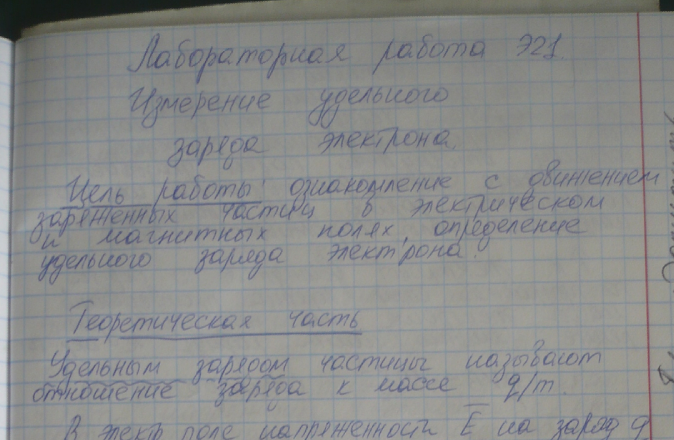 Лабораторная работа Э21.
Измерение удельного
заряда электрона.
Цель работы: ознакомление с движением
заряженных частиц в электрическом
и магнитных полях, определение
удельного заряда электрона.
Теоретическая часть
Удельным зарядом частицы называют
отношение заряда к массе q/m.
В электр. поле напряженности E на заряд q